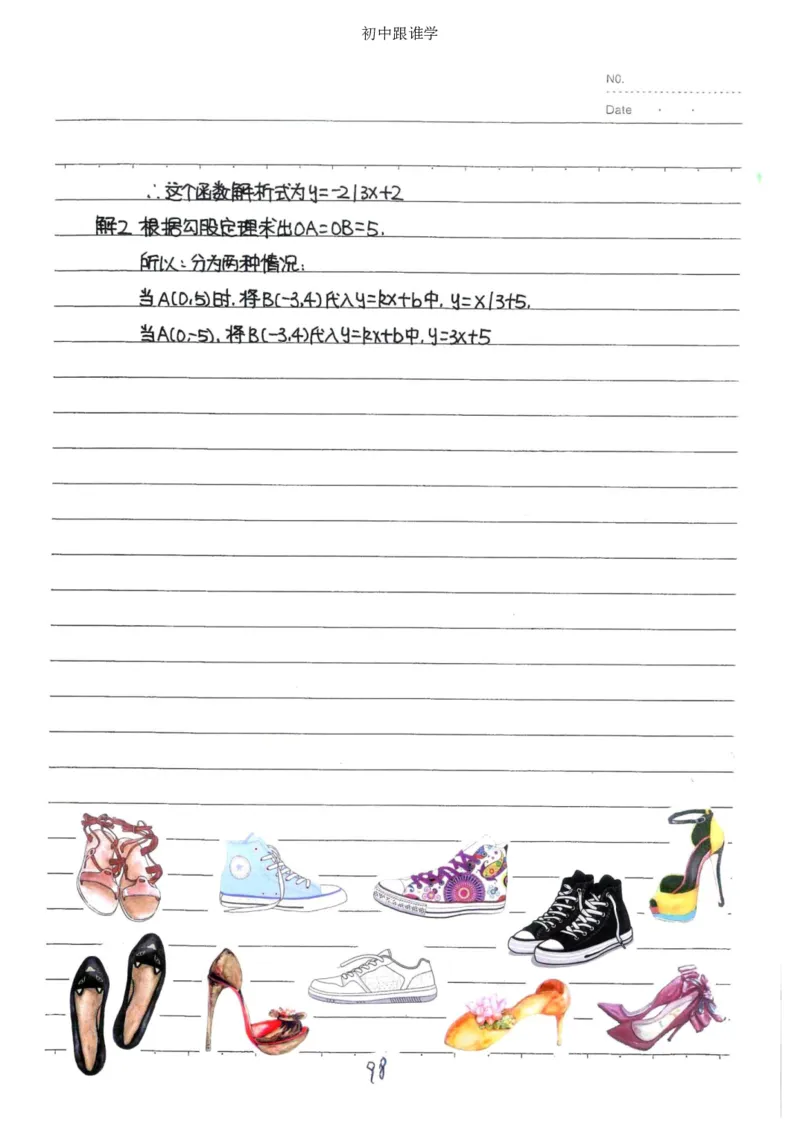 初中跟谁学
NO.
Date
∴这个函数解析式为y=-2/3x+2
解2 根据勾股定理求出OA=OB=5.
所以:分为两种情况:
当A(0,5)时.将B(-3,4)代入y=kx+b中,y=x/3+5.
当A(0,-5),将B(-3,4)代入y=kx+b中,y=3x+5
98